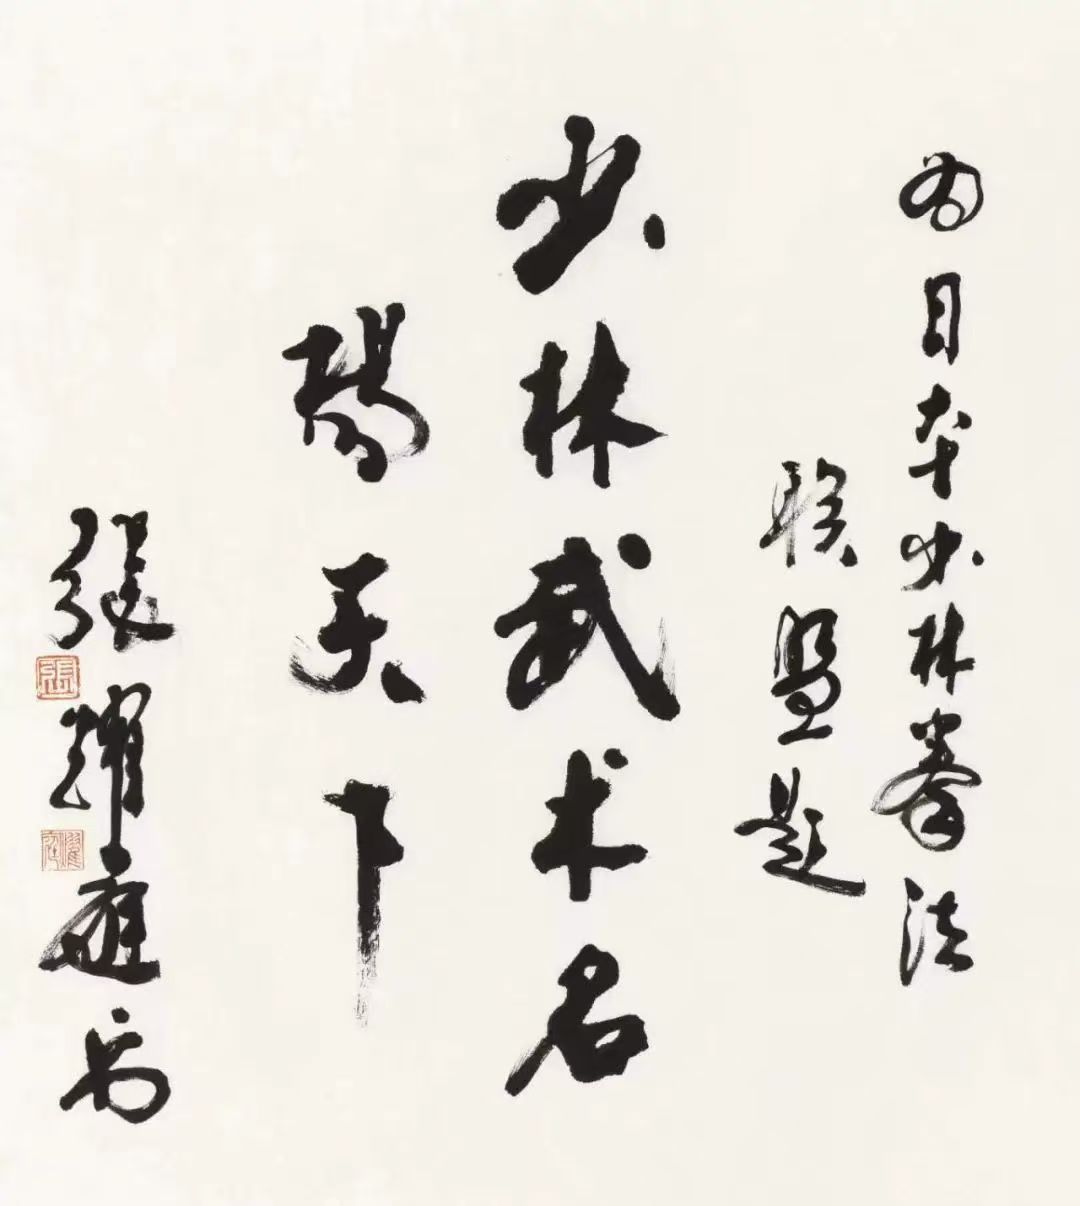 为日本少林拳法
联盟题
少林武术名
扬天下
张耀庭书
张
耀庭